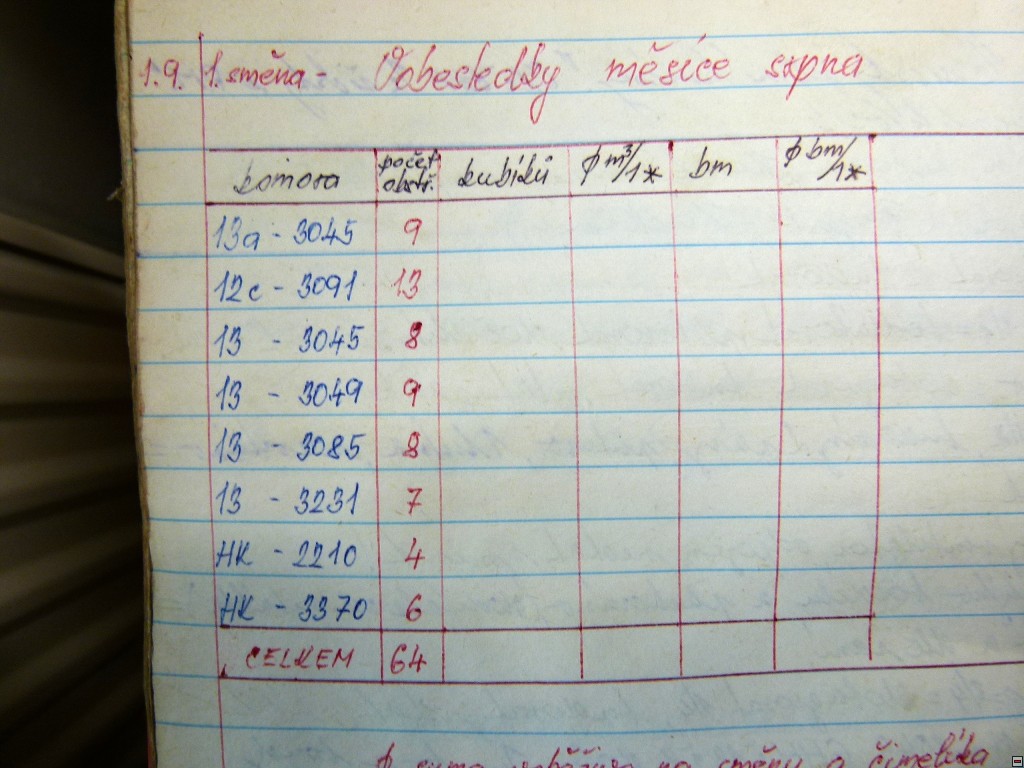 1.9. 1. směna - Vobesledky měsíce srpna
komora počet obstř. kubíků ϕ m³/1* bm ϕ bm/1*
13a - 3045 9
12c - 3091 13
13 - 3045 8
13 - 3049 9
13 - 3085 8
13 - 3231 7
HK - 2210 4
HK - 3370 6
CELKEM 64
na směnu a čimelíka